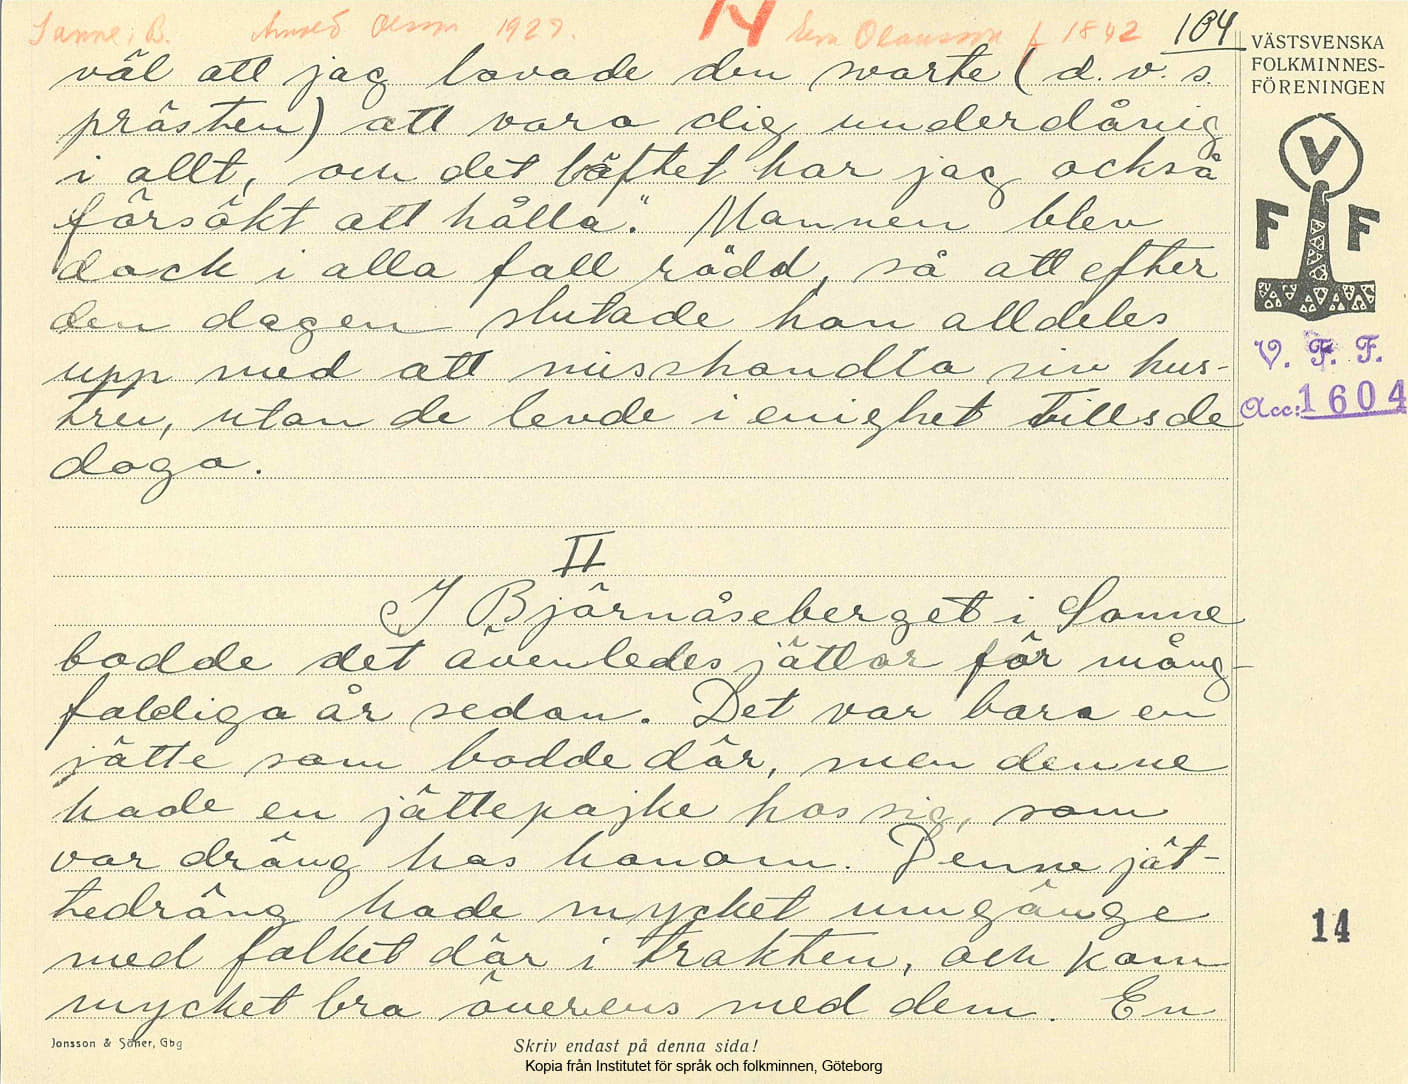 Sanne, B. Arnold Olsson 1927. 14 Olausson f 1842 104
väl att jag lovade den svarte (d.v.s.
prästen) att vara dig underdånig
i allt, och det löftet har jag också
försökt att hålla." Mannen blev
dock i alla fall rädd, så att efter
den dagen slutade han alldeles
upp med att misshandla sin hus-
tru, utan de levde i enighet tills de
dogo.
II
I Björnåseberget i Sanne
bodde det ävenledes jättar för mång-
faldiga år sedan. Det var bara en
jätte som bodde där, men denne
hade en jättepojke hos sig, som
var dräng hos honom. Denne jät-
tedräng hade mycket umgänge
med folket där i trakten, och kom
mycket bra överens med dem. En
VÄSTSVENSKA
FOLKMINNES-
FÖRENINGEN
V
F F
V. F. F.
Acc: 1604
14
Jonsson & Söner, Gbg
Skriv endast på denna sida!
Kopia från Institutet för språk och folkminnen, Göteborg